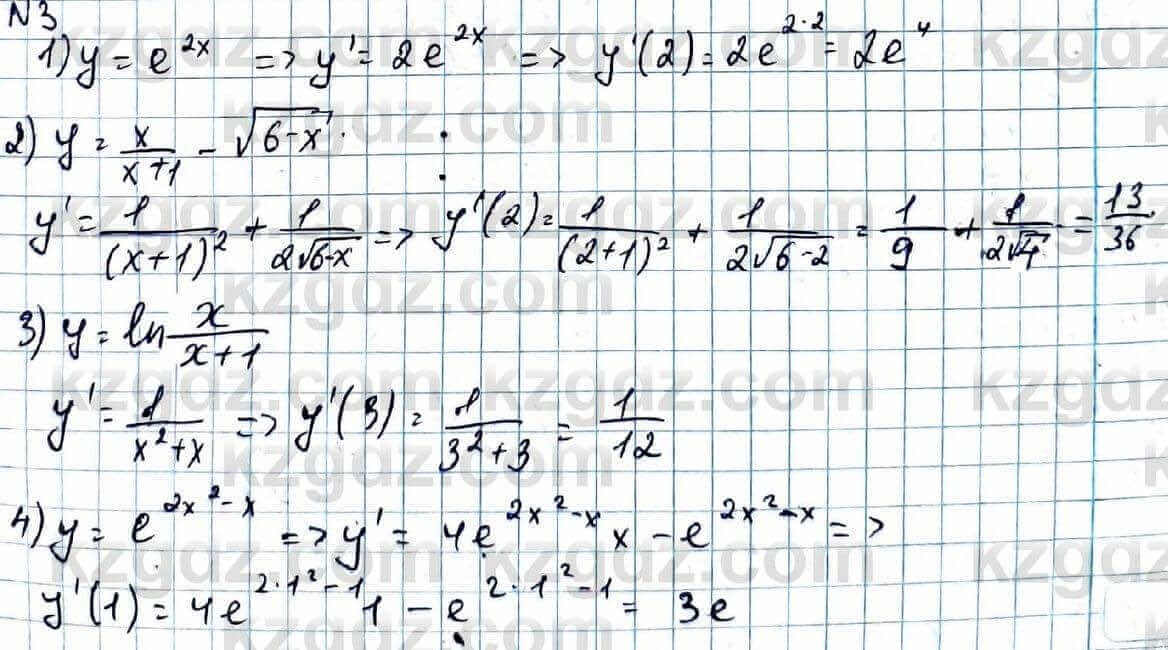 N3
1) y = e^{2x} => y' = 2e^{2x} => y'(2) = 2e^{2·2} = 2e^4
2) y = x/(x+1) - √(6-x)
y' = 1/(x+1)^2 + 1/(2√(6-x)) => y'(2) = 1/(2+1)^2 + 1/(2√(6-2)) = 1/9 + 1/(2√4) = 13/36
3) y = ln x/(x+1)
y' = 1/(x^2+x) => y'(3) = 1/(3^2+3) = 1/12
4) y = e^{2x^2-x} => y' = 4e^{2x^2-x} x - e^{2x^2-x} =>
y'(1) = 4e^{2·1^2-1} 1 - e^{2·1^2-1} = 3e
kzgdz.com